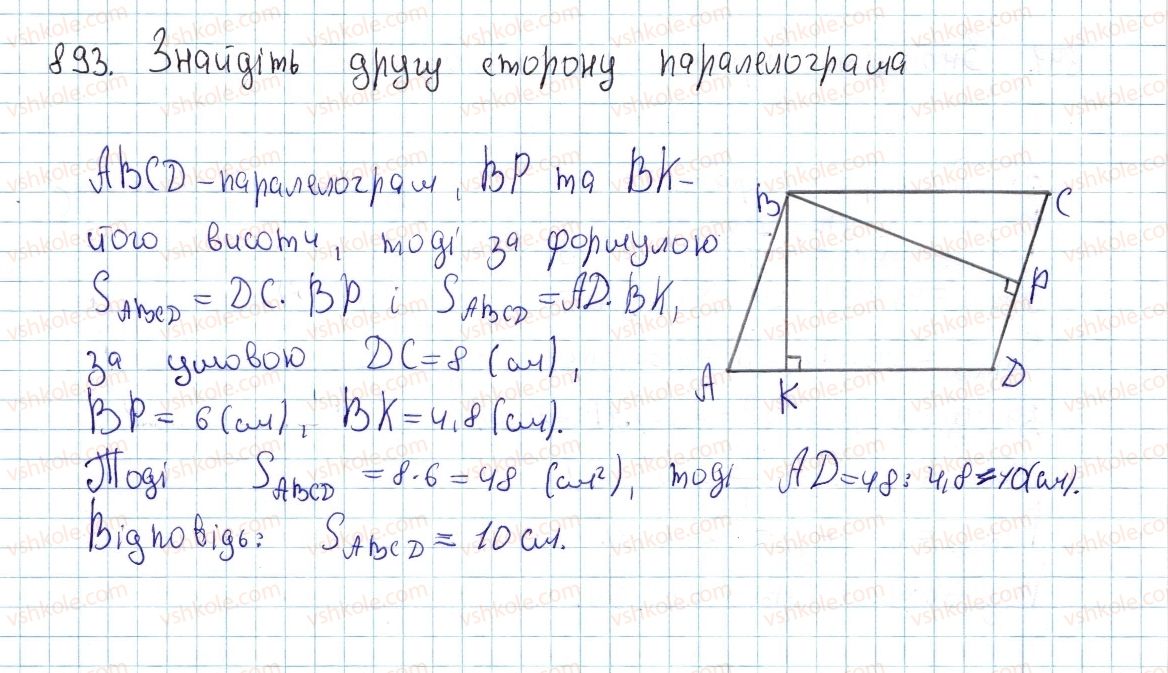 893. Знайдіть другу сторону паралелограма
ABCD – паралелограм, BP та BK –
його висоти, тоді за формулою
S_ABCD = DC · BP і S_ABCD = AD · BK,
за умовою DC = 8 (см),
BP = 6 (см), BK = 4,8 (см).
Тоді S_ABCD = 8 · 6 = 48 (см²), тоді AD = 48 : 4,8 = 10 (см).
Відповідь: S_ABCD = 10 см.
B C
P
A K D
vshkole.com